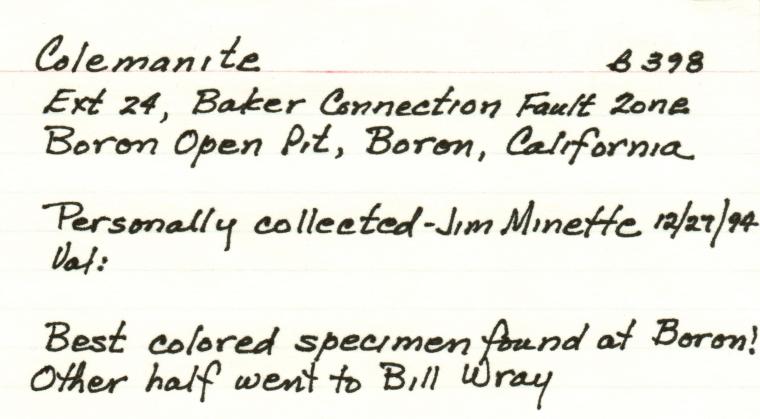 Colemanite B 398
Ext 24, Baker Connection Fault Zone
Boron Open Pit, Boron, California
Personally collected-Jim Minette 12/27/94
Val:
Best colored specimen found at Boron!
Other half went to Bill Wray